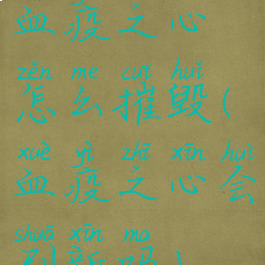 血疫之心
zěn me cuī huǐ
怎么摧毁(
xuè yì zhī xīn huì
血疫之心会
shuā xīn ma
刷新吗)